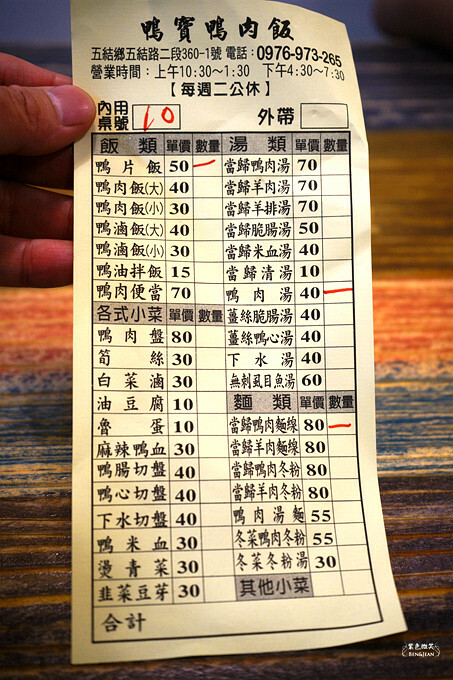 鴨寶鴨肉飯
五結鄉五結路二段360-1號 電話：0976-973-265
營業時間：上午10:30～1:30 下午4:30～7:30
【每週二公休】
內用桌號 10 外帶
飯類 單價 數量 湯類 單價 數量
鴨片飯 50 一 當歸鴨肉湯 70
鴨肉飯(大) 40 當歸羊肉湯 70
鴨肉飯(小) 30 當歸羊排湯 70
鴨滷飯(大) 40 當歸脆腸湯 50
鴨滷飯(小) 30 當歸米血湯 40
鴨油拌飯 15 當歸清湯 10
鴨肉便當 70 鴨肉湯 40 一
各式小菜 單價 數量 薑絲脆腸湯 40
鴨肉盤 80 薑絲鴨心湯 40
筍絲 30 下水湯 40
白菜滷 30 無刺虱目魚湯 60
油豆腐 10 麵類 單價 數量
魯蛋 10 當歸鴨肉麵線 80 一
麻辣鴨血 30 當歸羊肉麵線 80
鴨腸切盤 40 當歸鴨肉冬粉 80
鴨心切盤 40 當歸羊肉冬粉 80
下水切盤 40 鴨肉湯麵 55
鴨米血 30 冬菜鴨肉冬粉 55
燙青菜 30 冬菜冬粉湯 30
韭菜豆芽 30 其他小菜
合計
紫色微笑
BENGJIAN